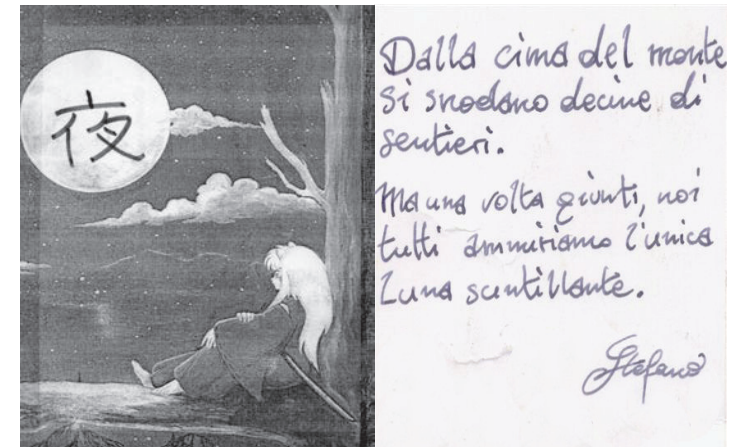 夜
Dalla cima del monte
si snodano decine di
sentieri.
Ma una volta giunti, noi
tutti ammiriamo l'unica
Luna scintillante.
Stefano